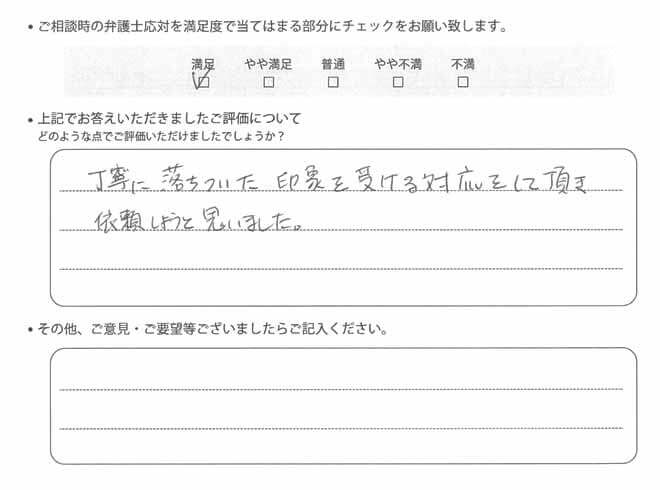 • ご相談時の弁護士応対を満足度で当てはまる部分にチェックをお願い致します。
満足 やや満足 普通 やや不満 不満
• 上記でお答えいただきましたご評価について
どのような点でご評価いただけましたでしょうか？
丁寧に落ちついた印象を受ける対応をして頂き
依頼しようと思いました。
• その他、ご意見・ご要望等ございましたらご記入ください。